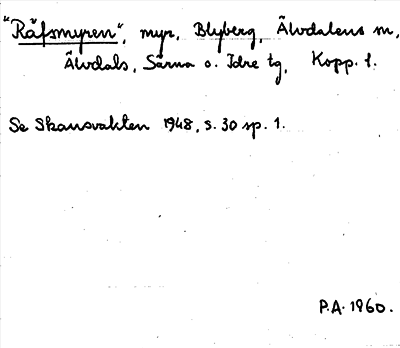 "Räfsmyren", myr, Blyberg, Älvdalens sn,
Älvdals, Särna o. Idre tg, Kopp. l.
Se Skansvakten 1948, s. 30 sp. 1.
P.A. 1960.